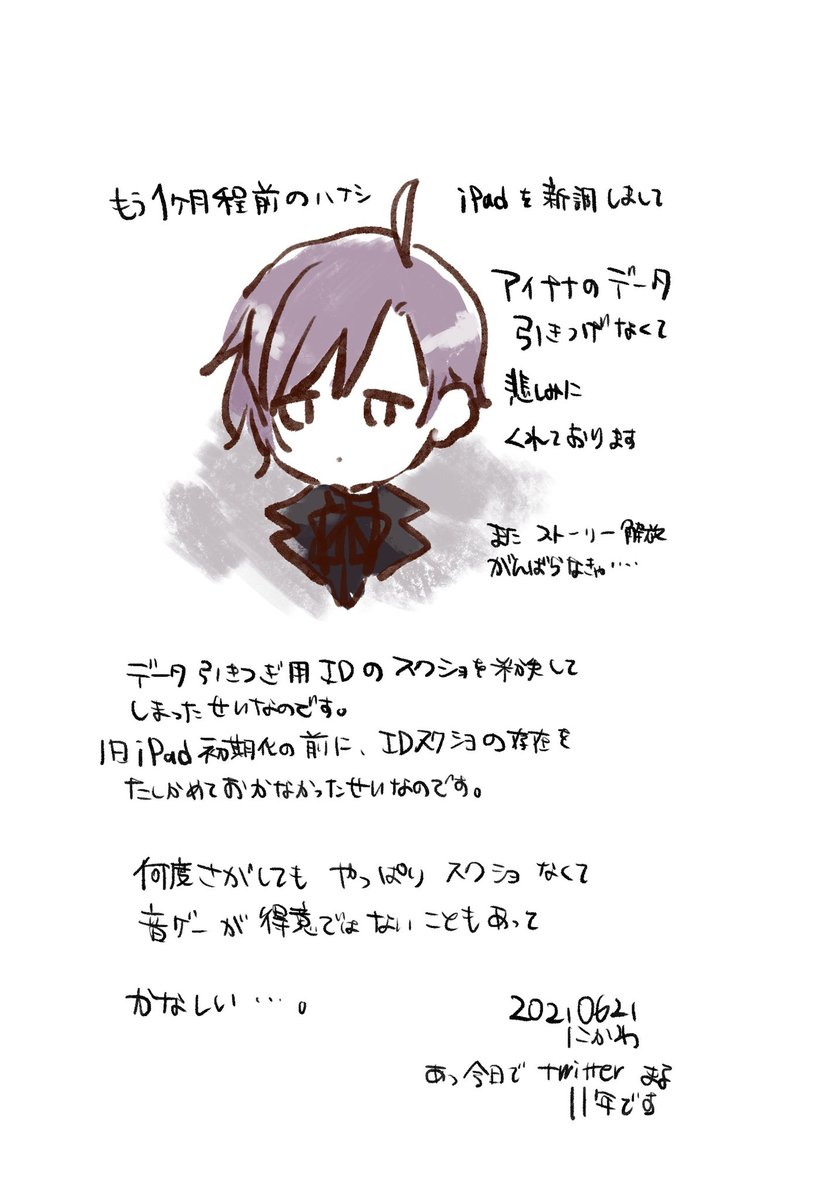 もう1ヶ月程前のハナシ
iPadを新調しまして
アイナナのデータ
引きつげなくて
悲しみに
くれております
また ストーリー解放
がんばらなきゃ‥‥
データ引きつぎ用IDのスクショを
しまったせいなのです。
旧iPad初期化の前に、IDスクショの存在を
たしかめておかなかったせいなのです。
何度さがしても やっぱり スクショ なくて
音ゲーが得意ではないこともあって
かなしい…。
20210621
にかわ
あっ今日で twitter まる
11年です